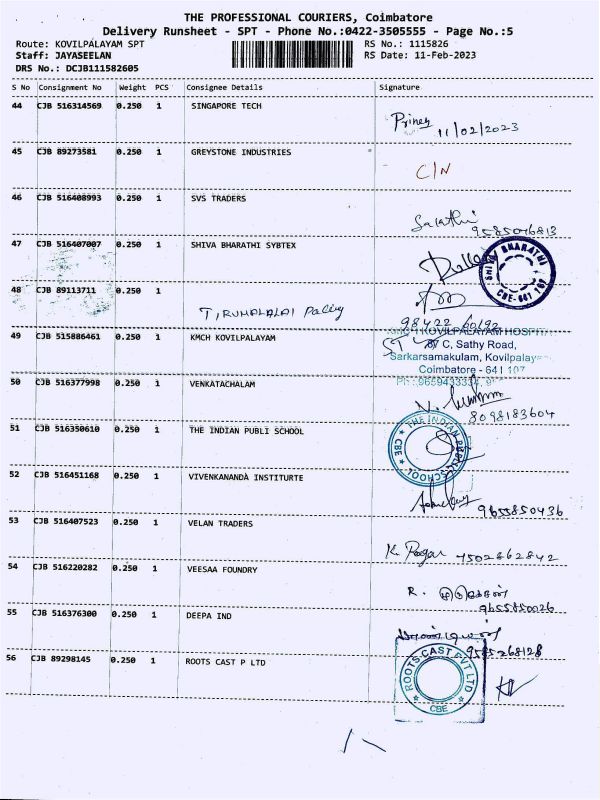 THE PROFESSIONAL COURIERS, Coimbatore
Delivery Runsheet - SPT - Phone No.:0422-3505555 - Page No.:5
Route: KOVILPALAYAM SPT RS No.: 1115826
Staff: JAYASEELAN RS Date: 11-Feb-2023
DRS No.: DCJB111582605
S No Consignment No Weight PCS Consignee Details Signature
44 CJB 516314569 0.250 1 SINGAPORE TECH
11/02/2023
45 CJB 89273581 0.250 1 GREYSTONE INDUSTRIES
C/N
46 CJB 516408993 0.250 1 SVS TRADERS
Sarathi
9585046813
47 CJB 516407007 0.250 1 SHIVA BHARATHI SYBTEX
SHIVA BHARATHI
CBE-641 107
48 CJB 89113711 0.250 1
TIRUMALALAI
98422 60192
49 CJB 515886461 0.250 1 KMCH KOVILPALAYAM
KMCH KOVILPALAYAM HOSPITAL
C, Sathy Road,
Sarkarsamakulam, Kovilpalay
Coimbatore - 641 107
Ph.:9659433334,
50 CJB 516377998 0.250 1 VENKATACHALAM
8098183604
51 CJB 516350610 0.250 1 THE INDIAN PUBLI SCHOOL
THE INDIAN PUBLIC SCHOOL
CBE
52 CJB 516451168 0.250 1 VIVENKANANDA INSTITURTE
9655850436
53 CJB 516407523 0.250 1 VELAN TRADERS
K. Ragar 7502862842
54 CJB 516220282 0.250 1 VEESAA FOUNDRY
R.
9655850026
55 CJB 516376300 0.250 1 DEEPA IND
9585268128
56 CJB 89298145 0.250 1 ROOTS CAST P LTD
ROOTS CAST PVT LTD
CBE